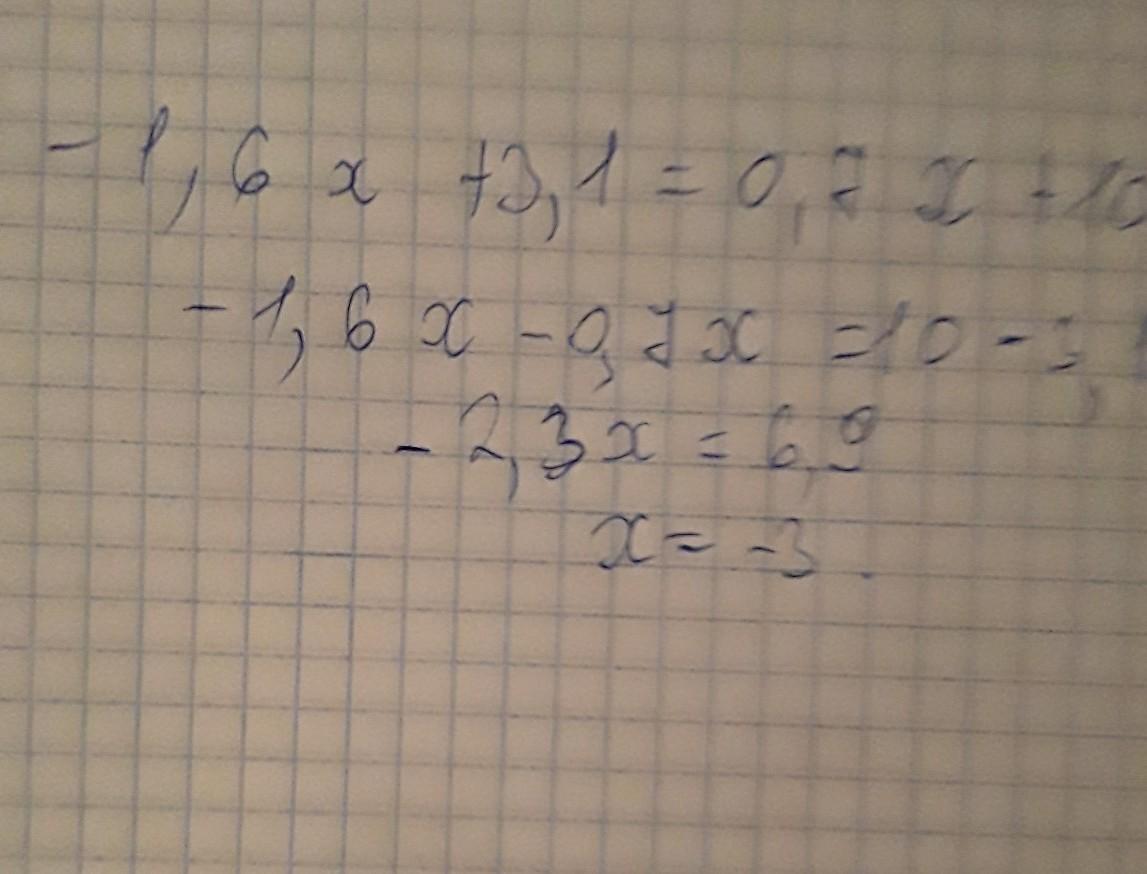 -1,6x +3,1 = 0,7x +10
-1,6x -0,7x =10 -3,1
-2,3x = 6,9
x= -3.